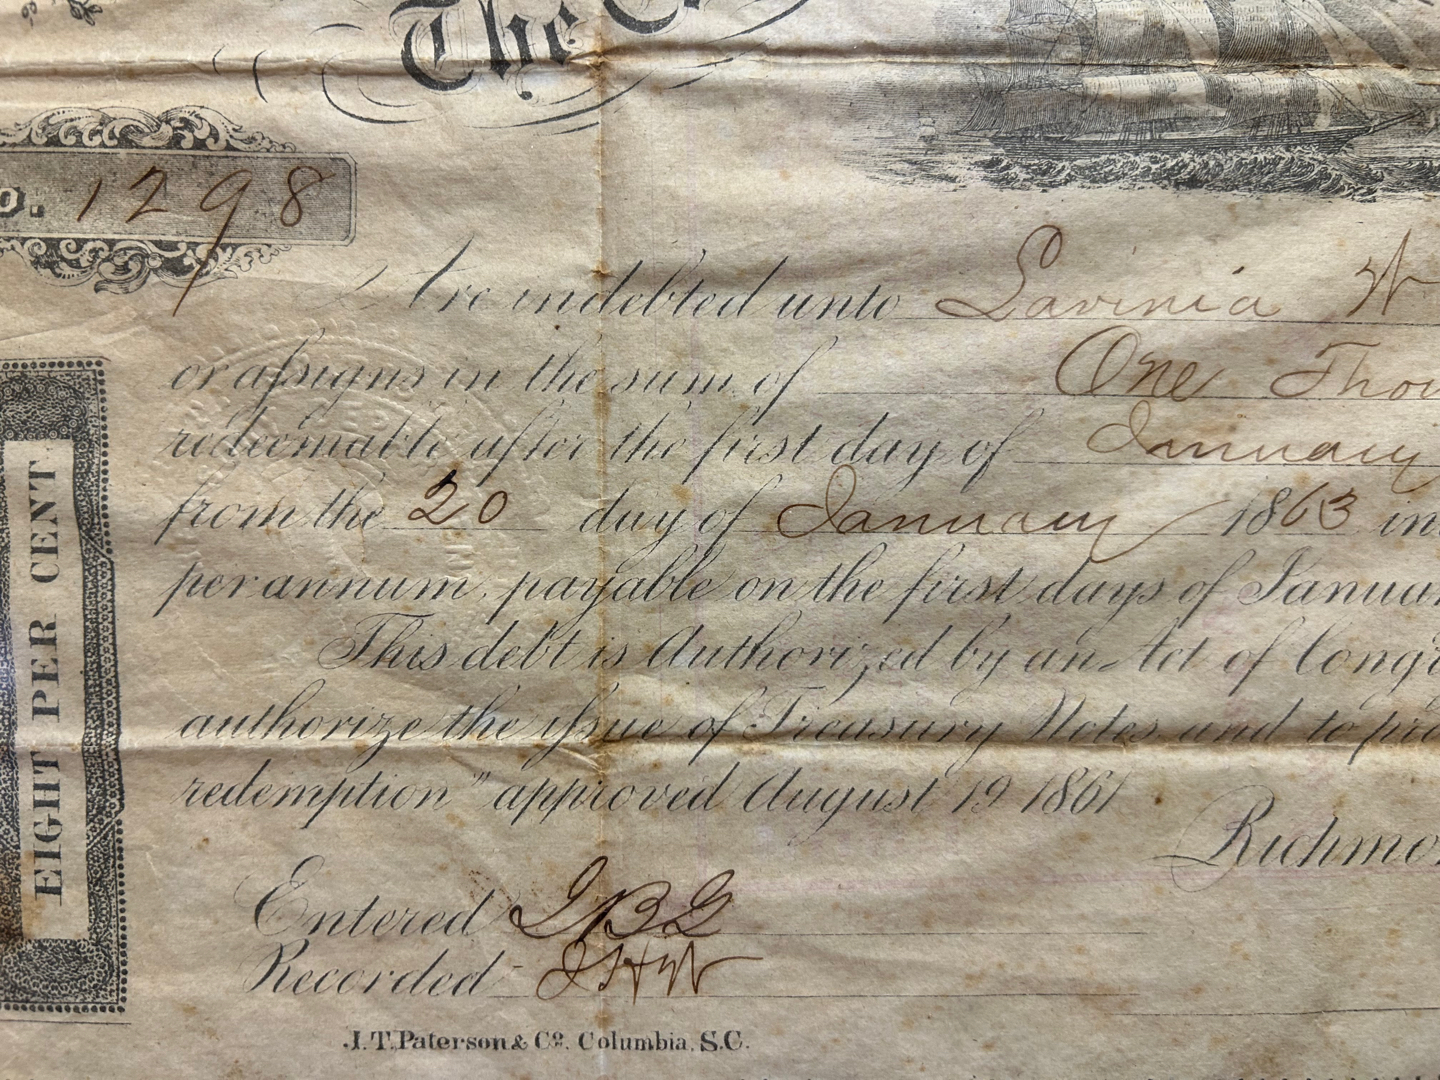 The
o. 1298
Are indebted unto Lavinia W
or assigns in the sum of One Thou
redeemable after the first day of January
from the 20 day of January 1863 in
per annum, payable on the first days of Januar
This debt is Authorized by an Act of Congr
authorize the issue of Treasury Notes and to pro
redemption" approved August 19 1861
Richmo
EIGHT PER CENT
Entered JBG
Recorded JHW
J.T. Paterson & Co. Columbia, S.C.